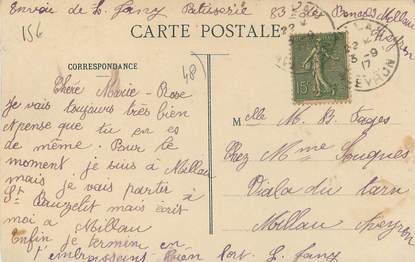 Envoie de L. Jany Patisserie 83 Millau
Aveyron
156
CARTE POSTALE
CORRESPONDANCE
48
Chère Marie-Rose
Je vais toujours très bien
et pense que tu en es
de même. Pour le
moment je suis à Millau
mais je vais partir à
St Lauzelit mais écrit
moi à Millau
Enfin je termine en
t'embrassant bien fort. L. Jany
15
22
3-9
17
AVEYRON
Melle M. B. Fages
Chez Mme Jougues
Viala du Tarn
Millau Aveyron